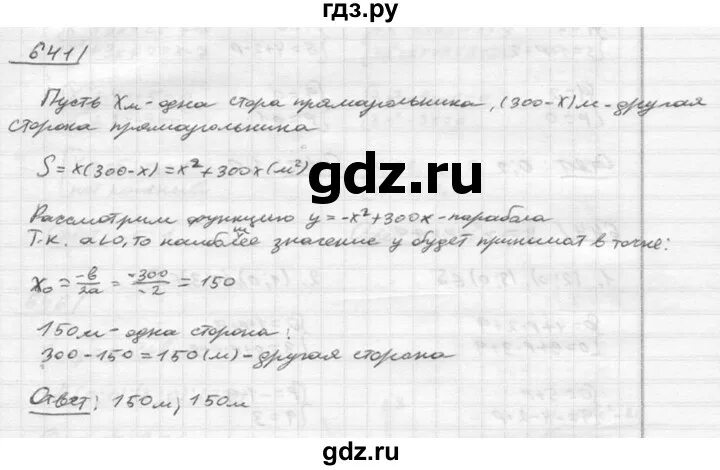 гдз.ру
641)
Пусть x м - одна стора прямаугольника, (300-x)м - другая
сторона прямаугольника
S = x(300-x) = x² + 300x (м²)
gdz.ru
Рассмотрим функцию y = -x² + 300x - парабола
Т.к. a<0, то наибольшее значение y будет принимат в точке:
x₀ = -b/2a = -300/-2 = 150
150м - одна сторона;
300 - 150 = 150 (м) - другая сторона
Ответ: 150м; 150м
gdz.ru